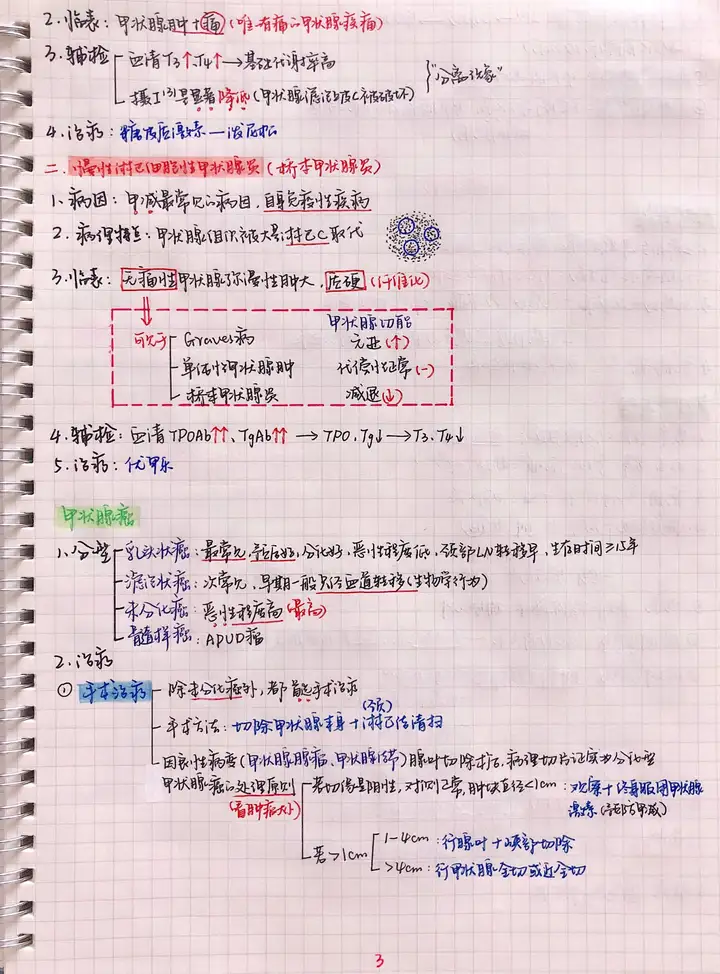 2.临表：甲状腺肿+痛(唯一有痛的甲状腺疾病)
3.辅检 血清T3↑、T4↑→基础代谢率高
摄I131量显著降低(甲状腺滤泡上皮C被破坏) }"分离现象"
4.治疗：糖皮质激素—泼尼松
二.慢性淋巴细胞性甲状腺炎(桥本甲状腺炎)
1、病因：甲减最常见的病因，自身免疫性疾病
2.病理特点：甲状腺组织被大量淋巴C取代
3.临表：无痛性甲状腺弥漫性肿大，质硬(纤维化)
甲状腺功能
可见于 Graves病 亢进(↑)
单纯性甲状腺肿 代偿性正常(-)
桥本甲状腺炎 减退(↓)
4.辅检：血清TPOAb↑↑、TgAb↑↑→TPO、Tg↓→T3、T4↓
5.治疗：优甲乐
甲状腺癌
1.分型 乳头状癌：最常见，预后好，分化好，恶性程度低，颈部LN转移早，生存时间≥15年
滤泡状癌：次常见，早期一般只经血道转移(生物学行为)
未分化癌：恶性程度高(最高)
髓样癌：APUD瘤
2.治疗
①手术治疗 除未分化癌外，都首选手术治疗
手术方法：切除甲状腺本身+(颈)淋巴结清扫
因良性病变(甲状腺腺瘤、甲状腺结节)腺叶切除术后，病理切片证实为分化型
甲状腺癌的处理原则 若切缘是阴性，对侧正常，肿块直径<1cm：观察+终身服用甲状腺
(看肿瘤大小) 激素(预防甲减)
若>1cm 1-4cm：行腺叶+峡部切除
>4cm：行甲状腺全切或近全切
3